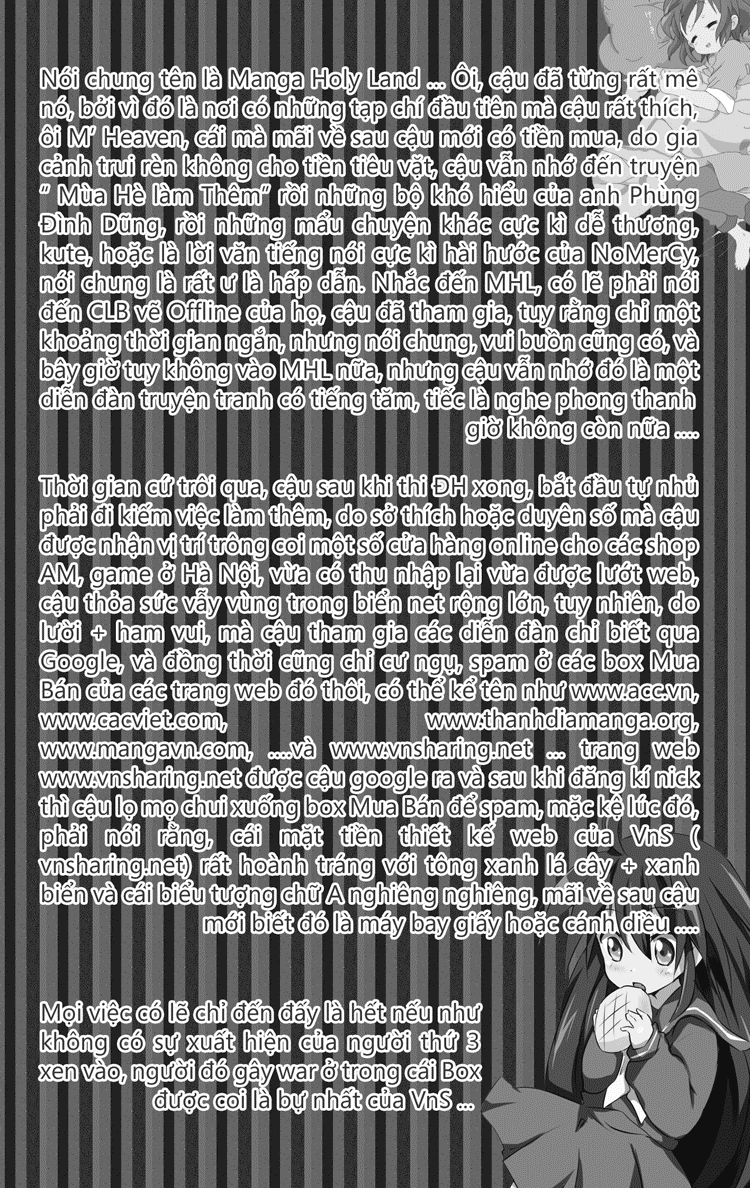 Nói chung tên là Manga Holy Land ... Ôi, cậu đã từng rất mê
nó, bởi vì đó là nơi có những tạp chí đầu tiên mà cậu rất thích,
ôi M’ Heaven, cái mà mãi về sau cậu mới có tiền mua, do gia
cảnh trui rèn không cho tiền tiêu vặt, cậu vẫn nhớ đến truyện
“ Mùa Hè làm Thêm” rồi những bộ khó hiểu của anh Phùng
Đình Dũng, rồi những mẩu chuyện khác cực kì dễ thương,
kute, hoặc là lời văn tiếng nói cực kì hài hước của NoMerCy,
nói chung là rất ư là hấp dẫn. Nhắc đến MHL, có lẽ phải nói
đến CLB vẽ Offline của họ, cậu đã tham gia, tuy rằng chỉ một
khoảng thời gian ngắn, nhưng nói chung, vui buồn cũng có, và
bây giờ tuy không vào MHL nữa, nhưng cậu vẫn nhớ đó là một
diễn đàn truyện tranh có tiếng tăm, tiếc là nghe phong thanh
giờ không còn nữa ....
Thời gian cứ trôi qua, cậu sau khi thi ĐH xong, bắt đầu tự nhủ
phải đi kiếm việc làm thêm, do sở thích hoặc duyên số mà cậu
được nhận vị trí trông coi một số cửa hàng online cho các shop
AM, game ở Hà Nội, vừa có thu nhập lại vừa được lướt web,
cậu thỏa sức vẫy vùng trong biển net rộng lớn, tuy nhiên, do
lười + ham vui, mà cậu tham gia các diễn đàn chỉ biết qua
Google, và đồng thời cũng chỉ cư ngụ, spam ở các box Mua
Bán của các trang web đó thôi, có thể kể tên như www.acc.vn,
www.cacviet.com, www.thanhdiamanga.org,
www.mangavn.com, ....và www.vnsharing.net ... trang web
www.vnsharing.net được cậu google ra và sau khi đăng kí nick
thì cậu lọ mọ chui xuống box Mua Bán để spam, mặc kệ lúc đó,
phải nói rằng, cái mặt tiền thiết kế web của VnS (
vnsharing.net) rất hoành tráng với tông xanh lá cây + xanh
biển và cái biểu tượng chữ A nghiêng nghiêng, mãi về sau cậu
mới biết đó là máy bay giấy hoặc cánh diều ....
Mọi việc có lẽ chỉ đến đấy là hết nếu như
không có sự xuất hiện của người thứ 3
xen vào, người đó gây war ở trong cái Box
được coi là bự nhất của VnS ...